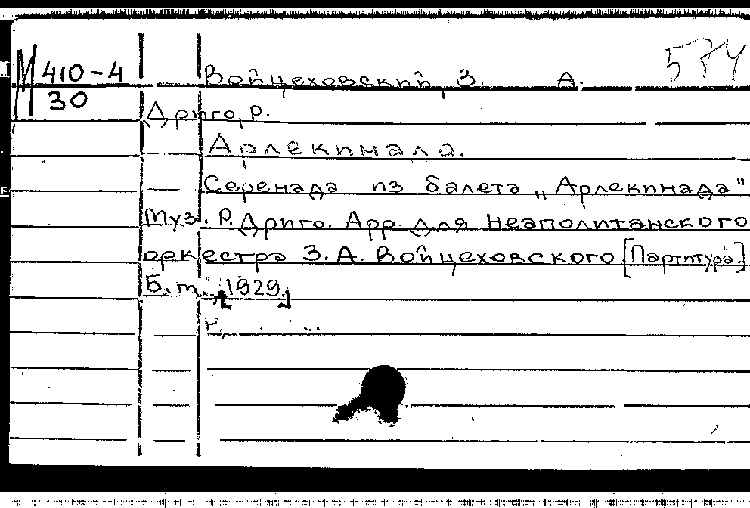 М 410-4 Войцеховский, З. А. 574
30
Дриго, Р.
Арлекинала.
Серенада из балета „Арлекинада"
Муз. Р. Дриго. Арр. для неаполитанского
оркестра З. А. Войцеховского [Партитура]
Б. т., [1929.]